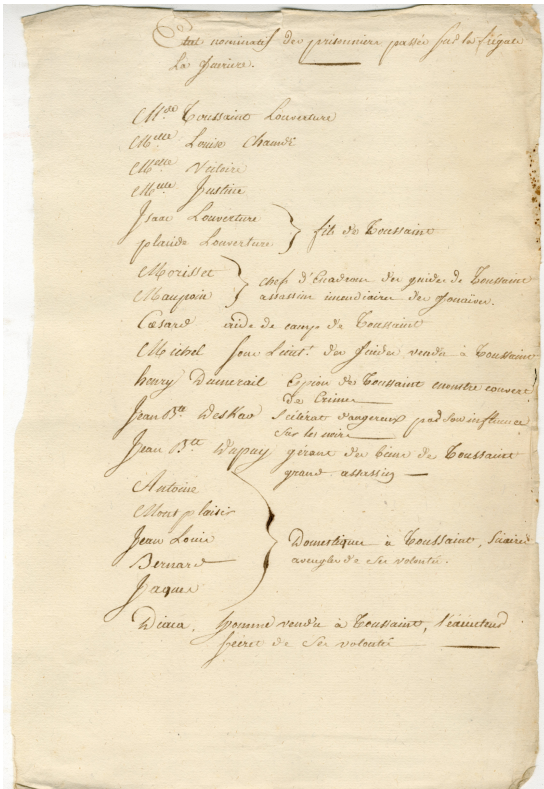 Etat nominatif des prisonniers passés sur la frégate
La guerriere.
Mde Toussaint Louverture
Melle Louise Chancí
Melle Victoire
Melle Justine
Isaac Louverture
placide Louverture
fils de Toussaint
Morisset
Maupoin
chefs d'Escadron des guides de Toussaint
assassins incendiaires des gonaïves.
Cesard aide de camp de Toussaint
Michel sous Lieutt des Guides vendu à Toussaint
henry Dumerail Espion de Toussaint monstre couvert
de Crimes
Jean Bte scélérat dangereux par son influence
sur les noirs
Jean Bte Dupuy gérant des biens de Toussaint
grand assassin
Antoine
Mont plaisir
Jean Louis
Bernard
Jaques
Domestiques à Toussaint, Sicaires
aveugles de ses volontés.
homme vendu à Toussaint, l'exécuteur
secret de ses volontés